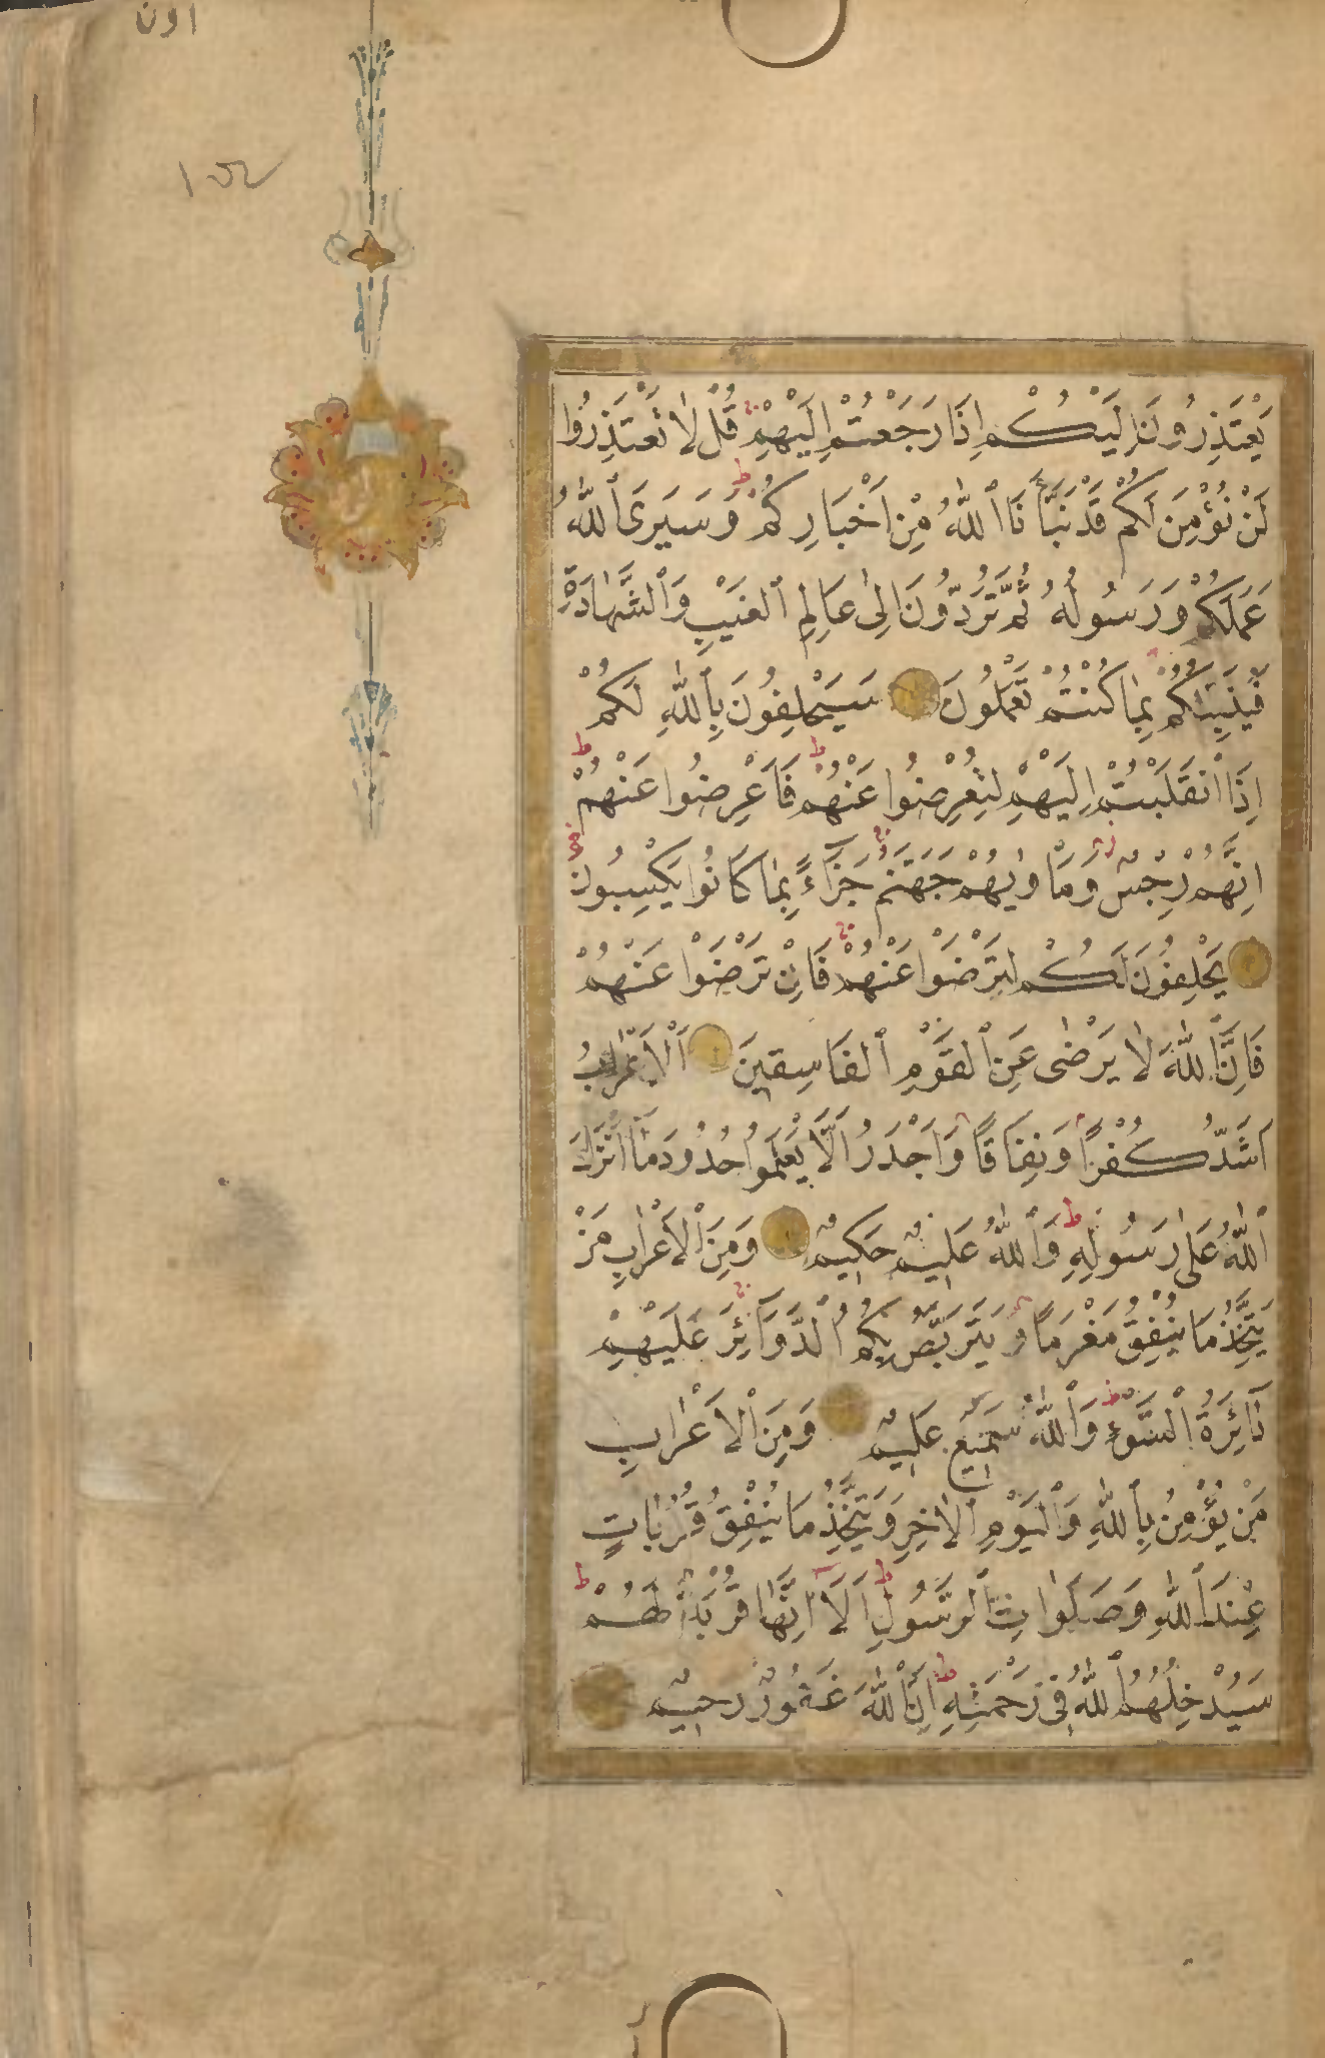 اون
يَعْتَذِرُونَ اِلَيْكُمْ اِذَا رَجَعْتُمْ اِلَيْهِمْ قُلْ لَا تَعْتَذِرُوا
لَنْ نُؤْمِنَ لَكُمْ قَدْ نَبَّأَنَا ٱللّٰهُ مِنْ اَخْبَارِكُمْ وَسَيَرَى ٱللّٰهُ
عَمَلَكُمْ وَرَسُولُهُ ثُمَّ تُرَدُّونَ اِلٰى عَالِمِ ٱلْغَيْبِ وَٱلشَّهَادَةِ
فَيُنَبِّئُكُمْ بِمَا كُنْتُمْ تَعْمَلُونَ سَيَحْلِفُونَ بِٱللّٰهِ لَكُمْ
اِذَا ٱنْقَلَبْتُمْ اِلَيْهِمْ لِتُعْرِضُوا عَنْهُمْ فَاَعْرِضُوا عَنْهُمْ
اِنَّهُمْ رِجْسٌ وَمَأْوٰيهُمْ جَهَنَّمُ جَزَآءً بِمَا كَانُوا يَكْسِبُونَ
يَحْلِفُونَ لَكُمْ لِتَرْضَوْا عَنْهُمْ فَاِنْ تَرْضَوْا عَنْهُمْ
فَاِنَّ ٱللّٰهَ لَا يَرْضٰى عَنِ ٱلْقَوْمِ ٱلْفَاسِقِينَ اَلْاَعْرَابُ
اَشَدُّ كُفْرًا وَنِفَاقًا وَاَجْدَرُ اَلَّا يَعْلَمُوا حُدُودَ مَآ اَنْزَلَ
ٱللّٰهُ عَلٰى رَسُولِهِ وَٱللّٰهُ عَلِيمٌ حَكِيمٌ وَمِنَ ٱلْاَعْرَابِ مَنْ
يَتَّخِذُ مَا يُنْفِقُ مَغْرَمًا وَيَتَرَبَّصُ بِكُمُ ٱلدَّوَآئِرَ عَلَيْهِمْ
دَآئِرَةُ ٱلسَّوْءِ وَٱللّٰهُ سَمِيعٌ عَلِيمٌ وَمِنَ ٱلْاَعْرَابِ
مَنْ يُؤْمِنُ بِٱللّٰهِ وَٱلْيَوْمِ ٱلْاٰخِرِ وَيَتَّخِذُ مَا يُنْفِقُ قُرُبَاتٍ
عِنْدَ ٱللّٰهِ وَصَلَوَاتِ ٱلرَّسُولِ اَلَآ اِنَّهَا قُرْبَةٌ لَهُمْ
سَيُدْخِلُهُمُ ٱللّٰهُ فِى رَحْمَتِهِ اِنَّ ٱللّٰهَ غَفُورٌ رَحِيمٌ